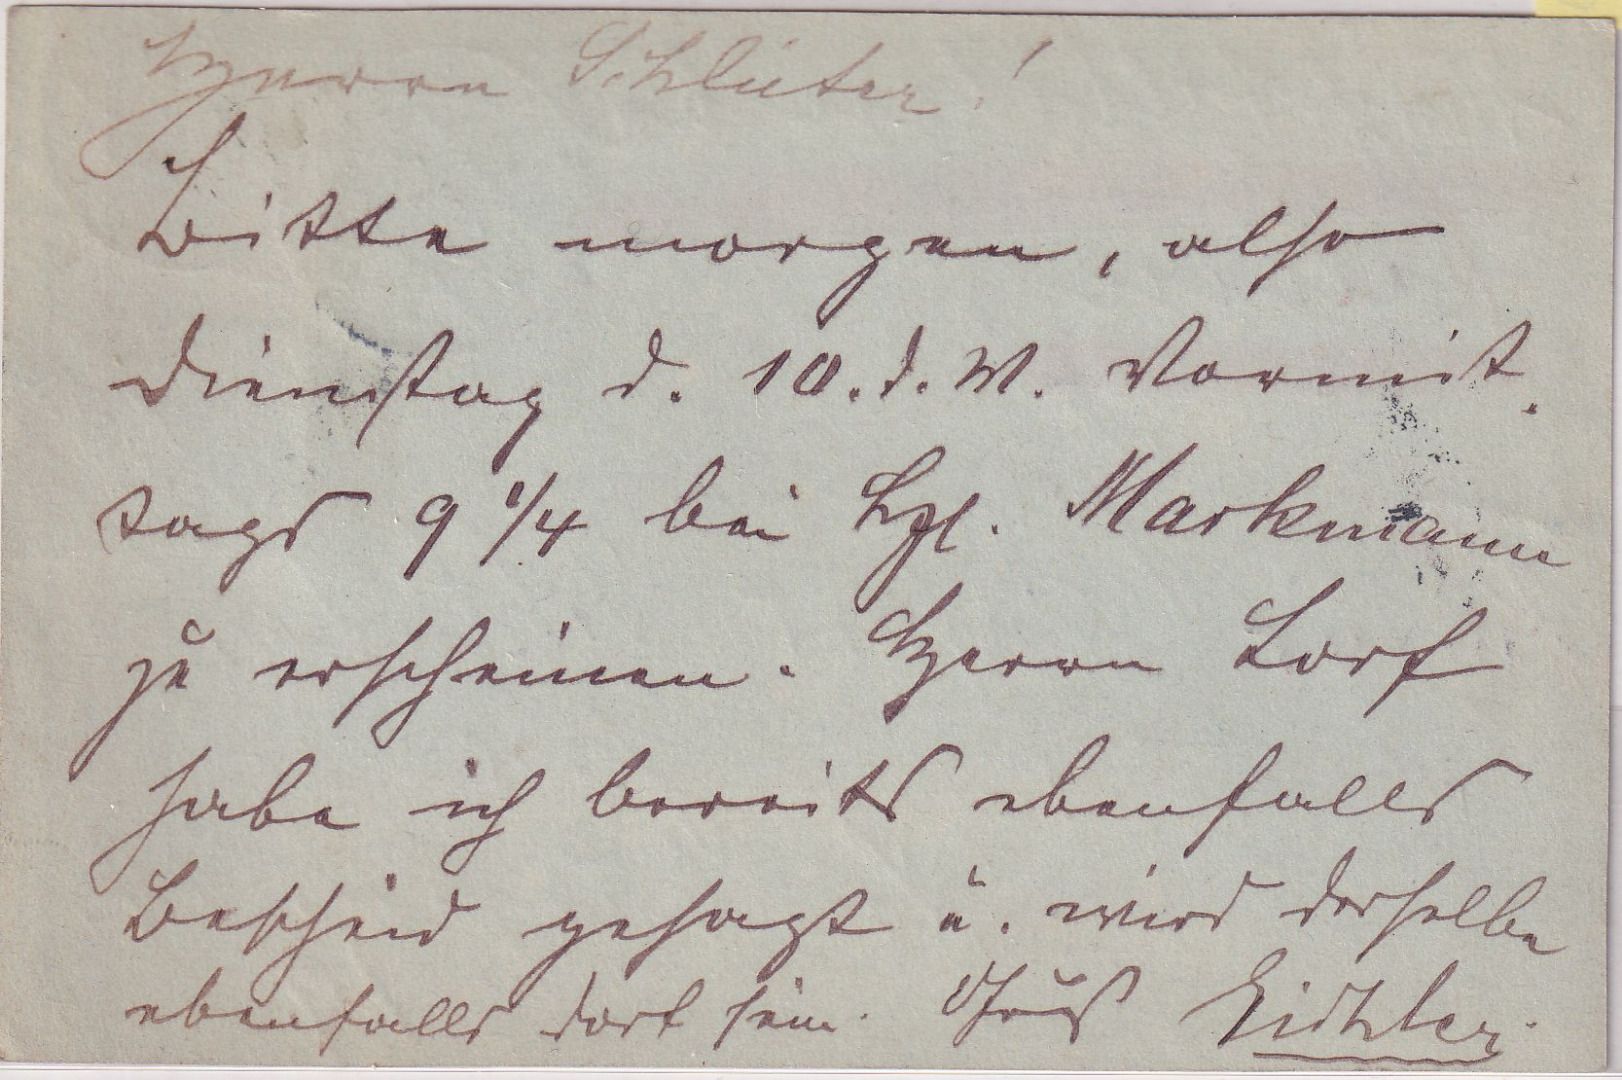 Herrn Schlüter!
Bitte morgen, also
Dienstag d. 10. d. M. Vormit.
tags 9 1/4 bei Hr. Markmann
zu erscheinen. Herrn Dorf
habe ich bereits ebenfalls
Bescheid gesagt u. wird derselbe
ebenfalls dort sein. Gruß Eichler.